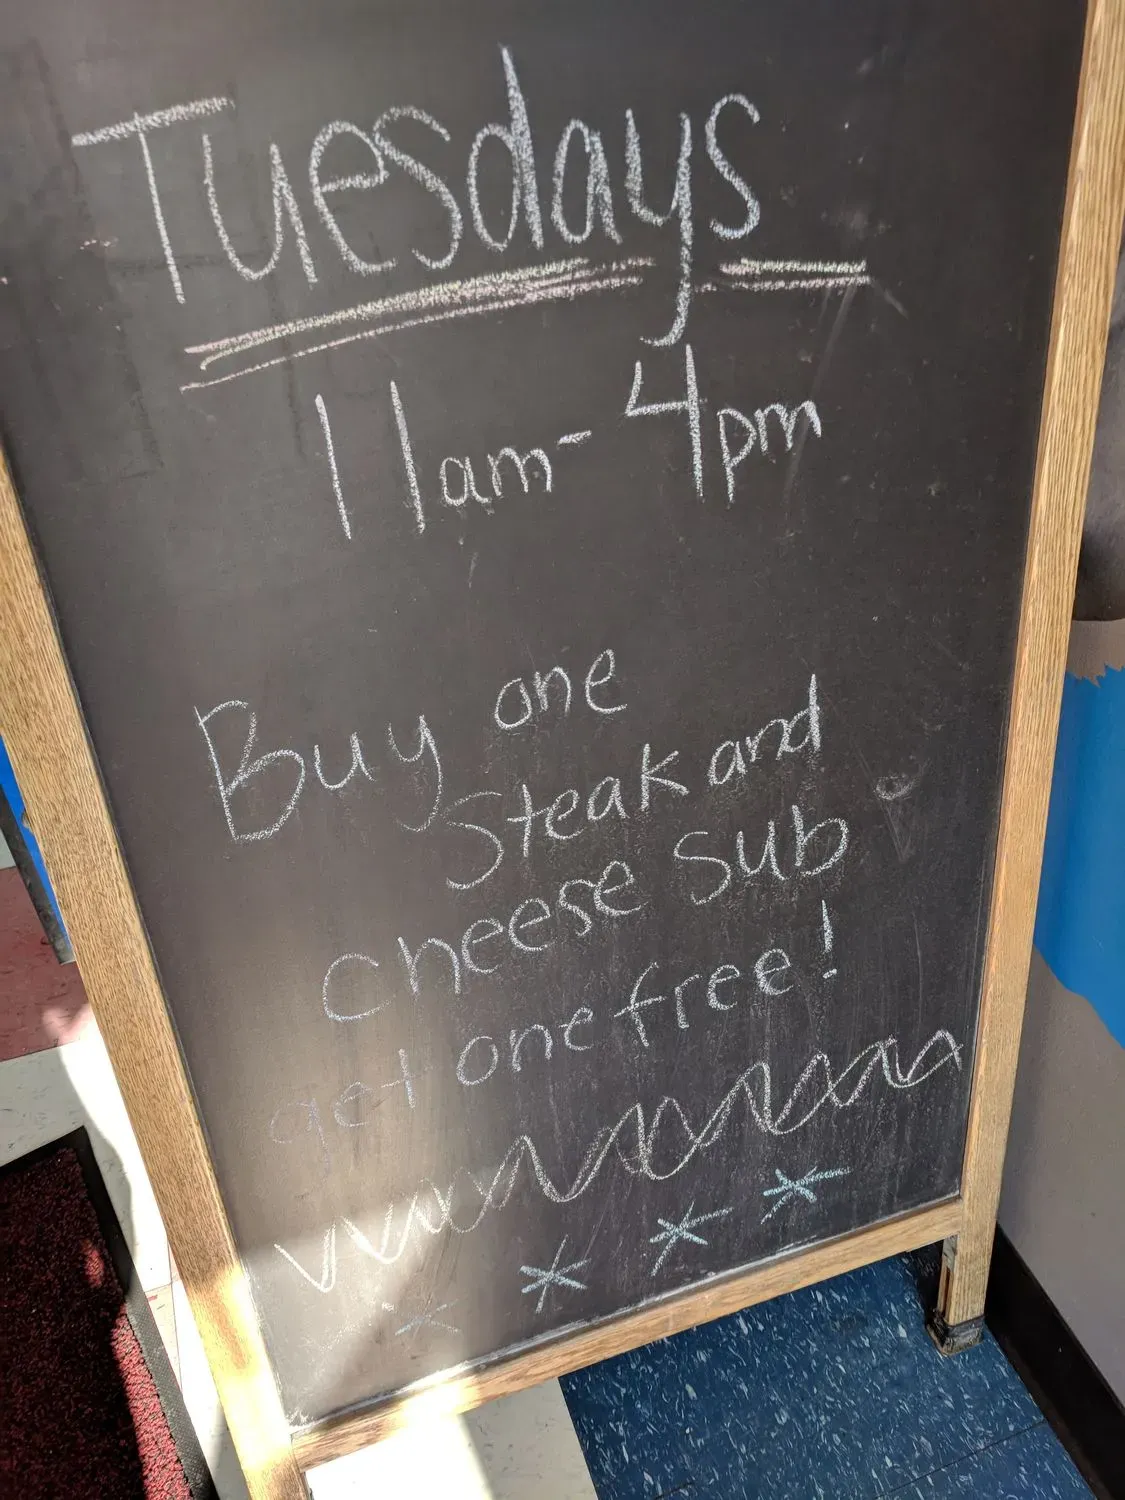 Tuesdays
11am-4pm
Buy one
Steak and
cheese sub
get one free!